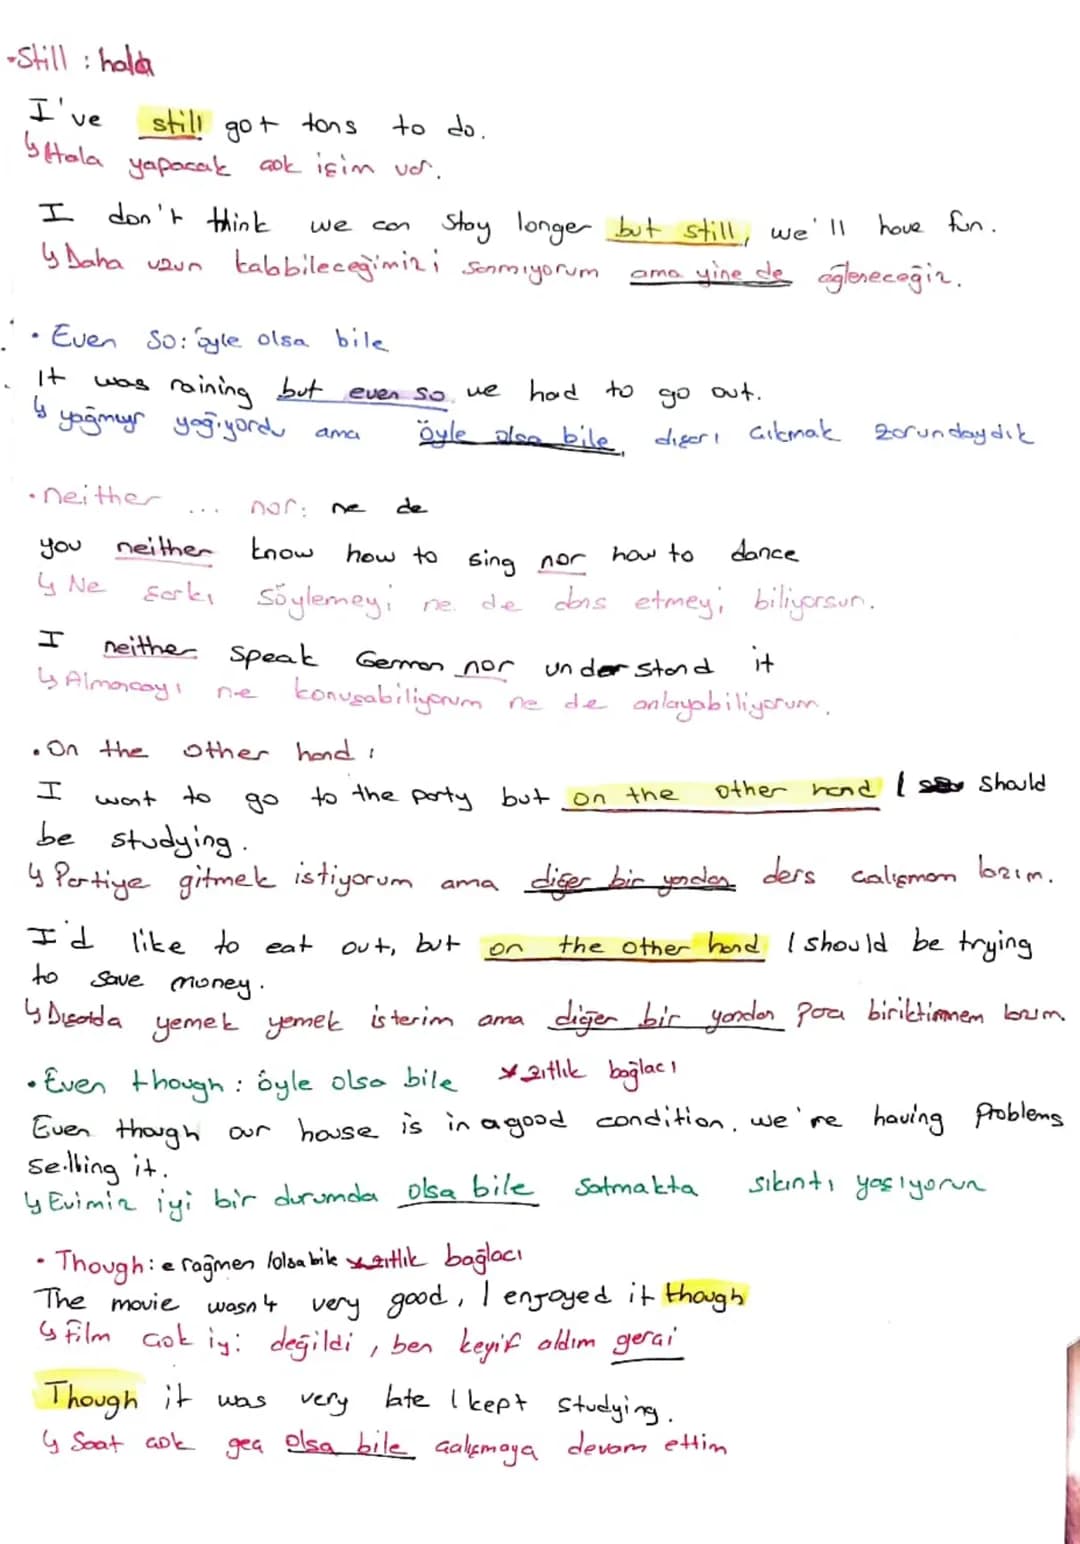 -Still : hala
I've still got tons to do.
↳ Hala yapacak çok işim var.
I don't think we can stay longer but still, we'll have fun.
↳ Daha uzun kalabileceğimizi sanmıyorum ama yine de eğleneceğiz.
• Even so: öyle olsa bile
It was raining but even so we had to go out.
↳ yağmur yağıyordu ama öyle olsa bile, dışarı çıkmak zorundaydık
• neither ... nor: ne de
you neither know how to sing nor how to dance
↳ Ne şarkı söylemeyi ne de dans etmeyi biliyorsun.
I neither speak German nor understand it
↳ Almancayı ne konuşabiliyorum ne de anlayabiliyorum.
• On the other hand :
I want to go to the party but on the other hand I should
be studying.
↳ Partiye gitmek istiyorum ama diğer bir yandan ders çalışmam lazım.
I'd like to eat out, but on the other hand I should be trying
to save money.
↳ Dışarıda yemek yemek isterim ama diğer bir yandan para biriktirmem lazım.
• Even though : öyle olsa bile * zıtlık bağlacı
Even though our house is in a good condition, we're having problems
selling it.
↳ Evimiz iyi bir durumda olsa bile satmakta sıkıntı yaşıyoruz
• Though : e rağmen /olsa bile * zıtlık bağlacı
The movie wasn't very good, I enjoyed it though
↳ film çok iyi değildi, ben keyif aldım gerçi
Though it was very late I kept studying.
↳ Saat çok geç olsa bile çalışmaya devam ettim